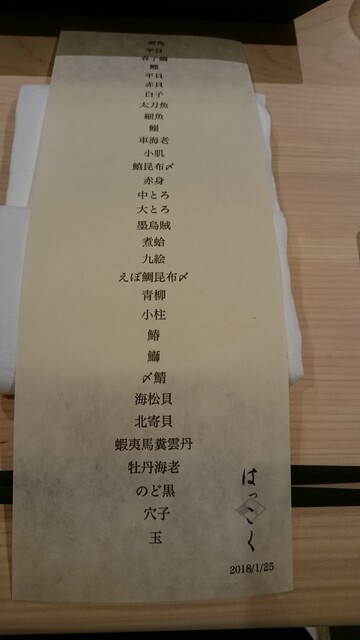 平目
春子鯛
平貝
赤貝
白子
太刀魚
細魚
鰯
車海老
小肌
鱚昆布〆
赤身
中とろ
大とろ
墨烏賊
煮蛤
九絵
えぼ鯛昆布〆
青柳
小柱
鰆
鰤
〆鯖
海松貝
北寄貝
蝦夷馬糞雲丹
牡丹海老
のど黒
穴子
玉
はっこく
2018/1/25